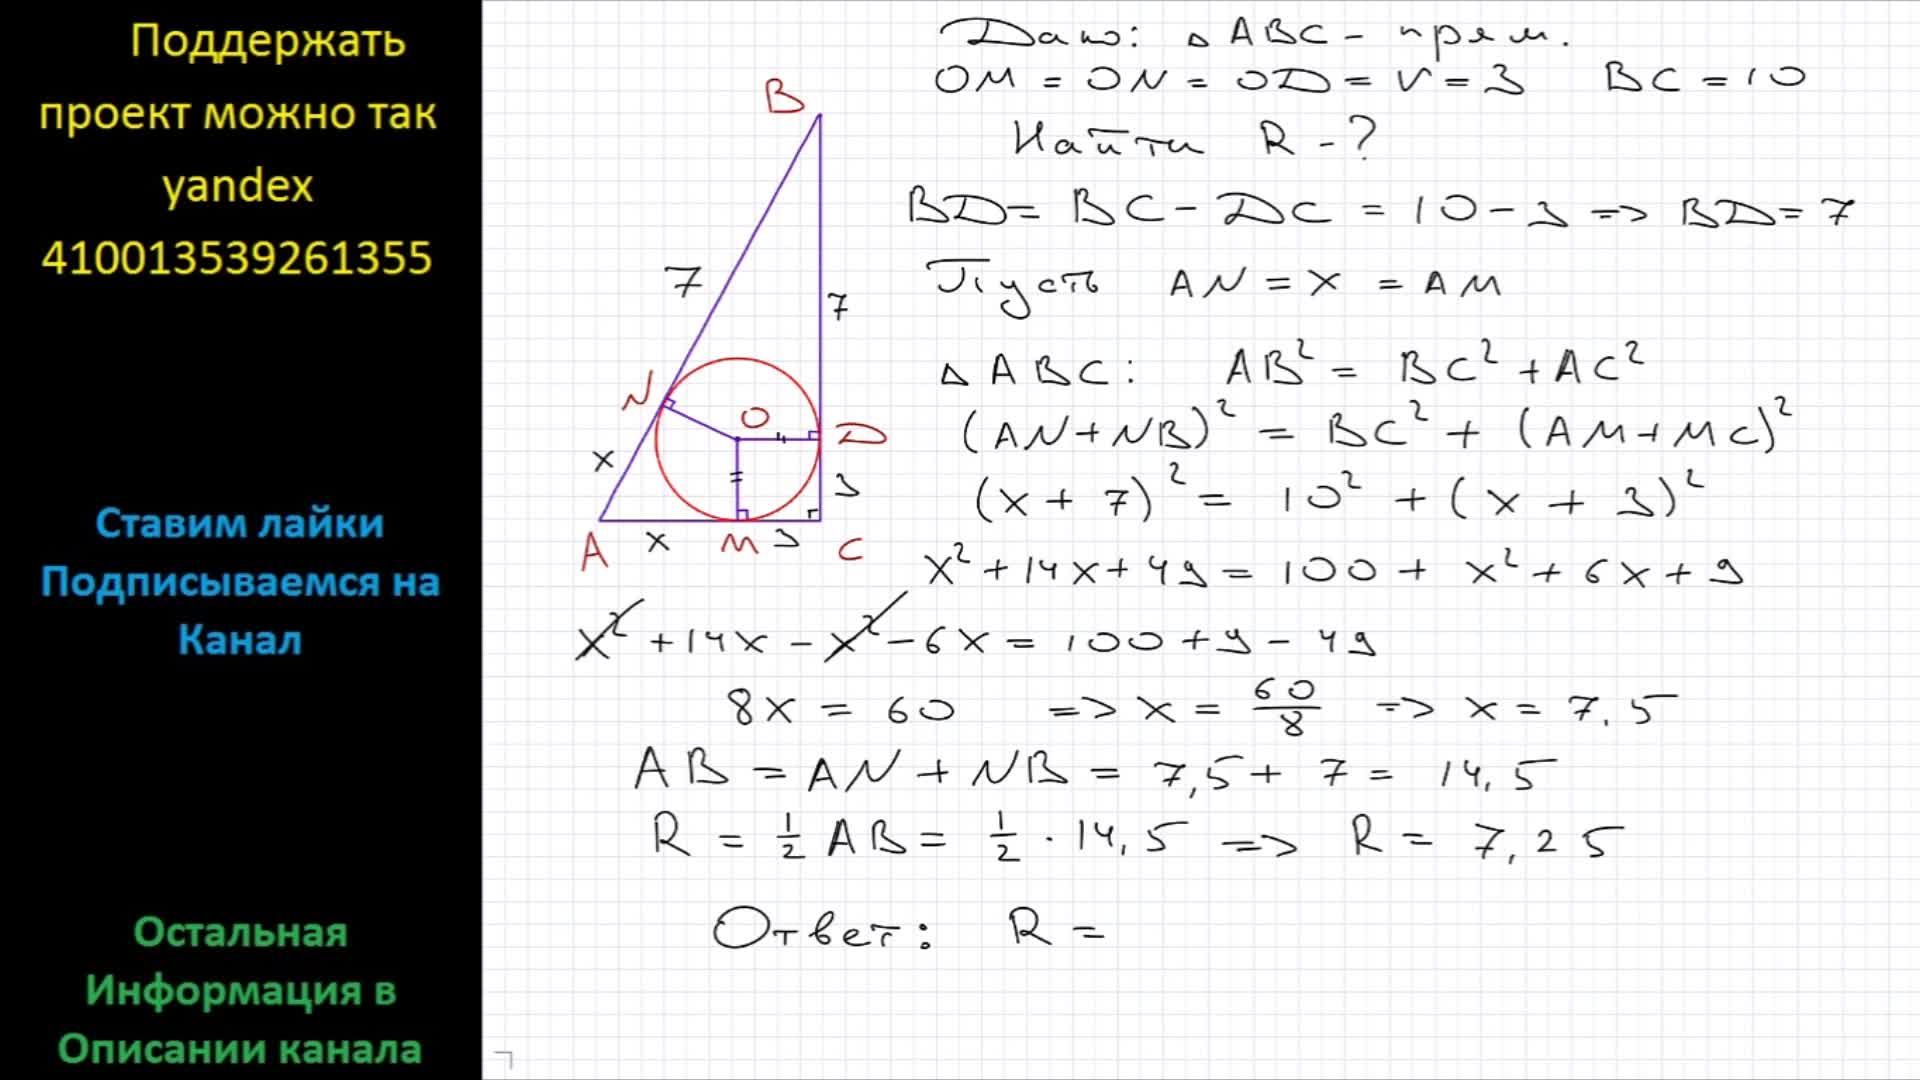 Поддержать
проект можно так
yandex
410013539261355
Ставим лайки
Подписываемся на
Канал
Остальная
Информация в
Описании канала
B
7
7
N
O
D
x
3
A
x
M
3
C
Дано: △ABC - прям.
OM = ON = OD = r = 3 BC = 10
Найти R - ?
BD = BC - DC = 10 - 3 => BD = 7
Пусть AN = x = AM
△ABC: AB² = BC² + AC²
(AN + NB)² = BC² + (AM + MC)²
(x + 7)² = 10² + (x + 3)²
x² + 14x + 49 = 100 + x² + 6x + 9
x² + 14x - x² - 6x = 100 + 9 - 49
8x = 60 => x = 60/8 => x = 7.5
AB = AN + NB = 7,5 + 7 = 14,5
R = 1/2 AB = 1/2 · 14,5 => R = 7,25
Ответ: R =